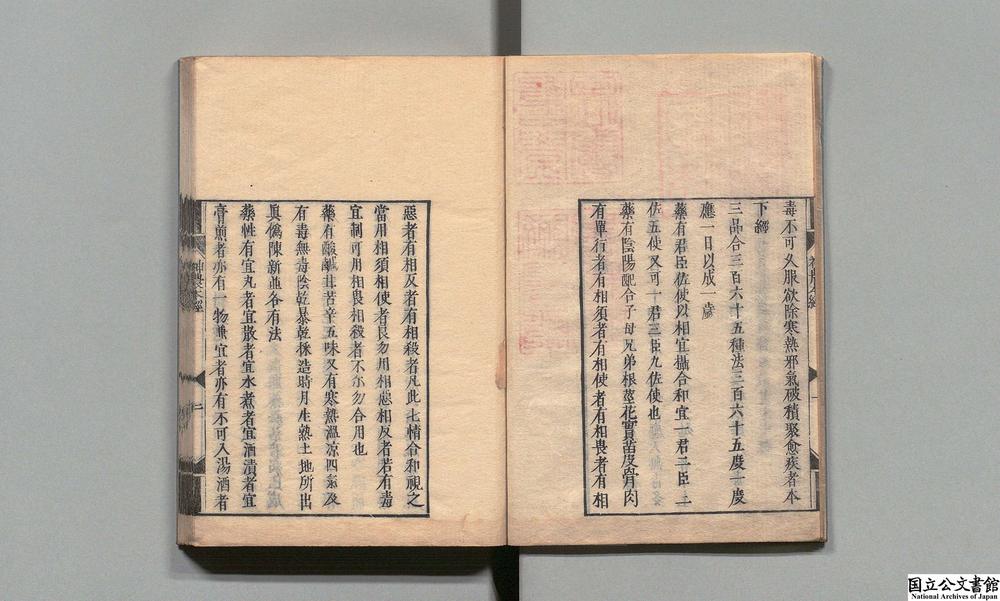 毒不可久服欲除寒熱邪氣破積聚愈疾者本
下經
三品合三百六十五種法三百六十五度一度
應一日以成一歲
藥有君臣佐使以相宜攝合和宜一君二臣三
佐五使又可一君三臣九佐使也
藥有陰陽配合子母兄弟根莖花實苗皮骨肉
有單行者有相須者有相使者有相畏者有相
惡者有相反者有相殺者凡此七情合和視之
當用相須相使者良勿用相惡相反者若有毒
宜制可用相畏相殺者不亦勿合用也
藥有酸鹹甘苦辛五味又有寒熱溫涼四氣及
有毒無毒陰乾暴乾採造時月生熟土地所出
眞僞陳新並各有法
藥性有宜丸者宜散者宜水煮者宜酒漬者宜
膏煎者亦有一物兼宜者亦有不可入湯酒者
神農本經
一
神農本經
二
国立公文書館
National Archives of Japan